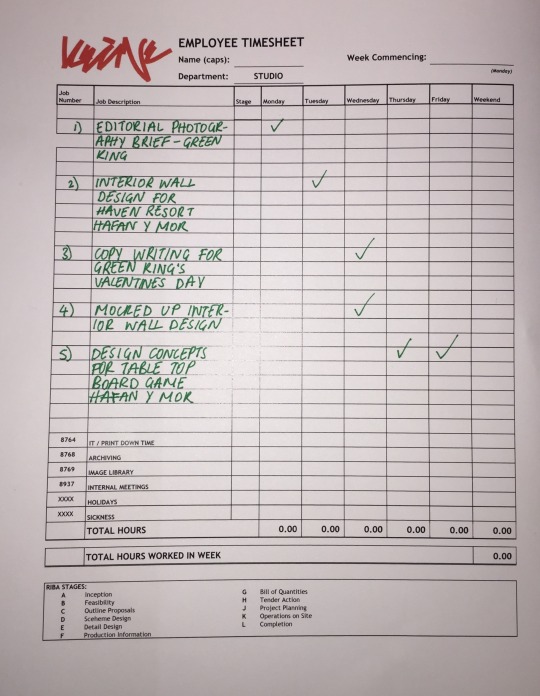 EMPLOYEE TIMESHEET
Name (caps):
Week Commencing:
(Monday)
Department: STUDIO
Job Number Job Description Stage Monday Tuesday Wednesday Thursday Friday Weekend
1) EDITORIAL PHOTOGR-
APHY BRIEF - GREEN
KING
2) INTERIOR WALL
DESIGN FOR
HAVEN RESORT
HAFAN Y MOR
3) COPY WRITING FOR
GREEN KING'S
VALENTINES DAY
4) MOCKED UP INTER-
IOR WALL DESIGN
5) DESIGN CONCEPTS
FOR TABLE TOP
BOARD GAME
HAFAN Y MOR
8764 IT / PRINT DOWN TIME
8768 ARCHIVING
8769 IMAGE LIBRARY
8937 INTERNAL MEETINGS
XXXX HOLIDAYS
XXXX SICKNESS
TOTAL HOURS 0.00 0.00 0.00 0.00 0.00 0.00
TOTAL HOURS WORKED IN WEEK 0.00
RIBA STAGES:
A Inception
B Feasibility
C Outline Proposals
D Sceheme Design
E Detail Design
F Production Information
G Bill of Quantities
H Tender Action
J Project Planning
K Operations on Site
L Completion